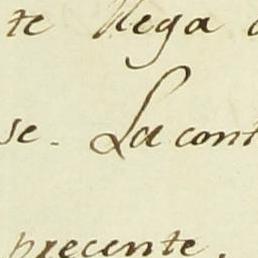 te Nega
se. La cont
precente.